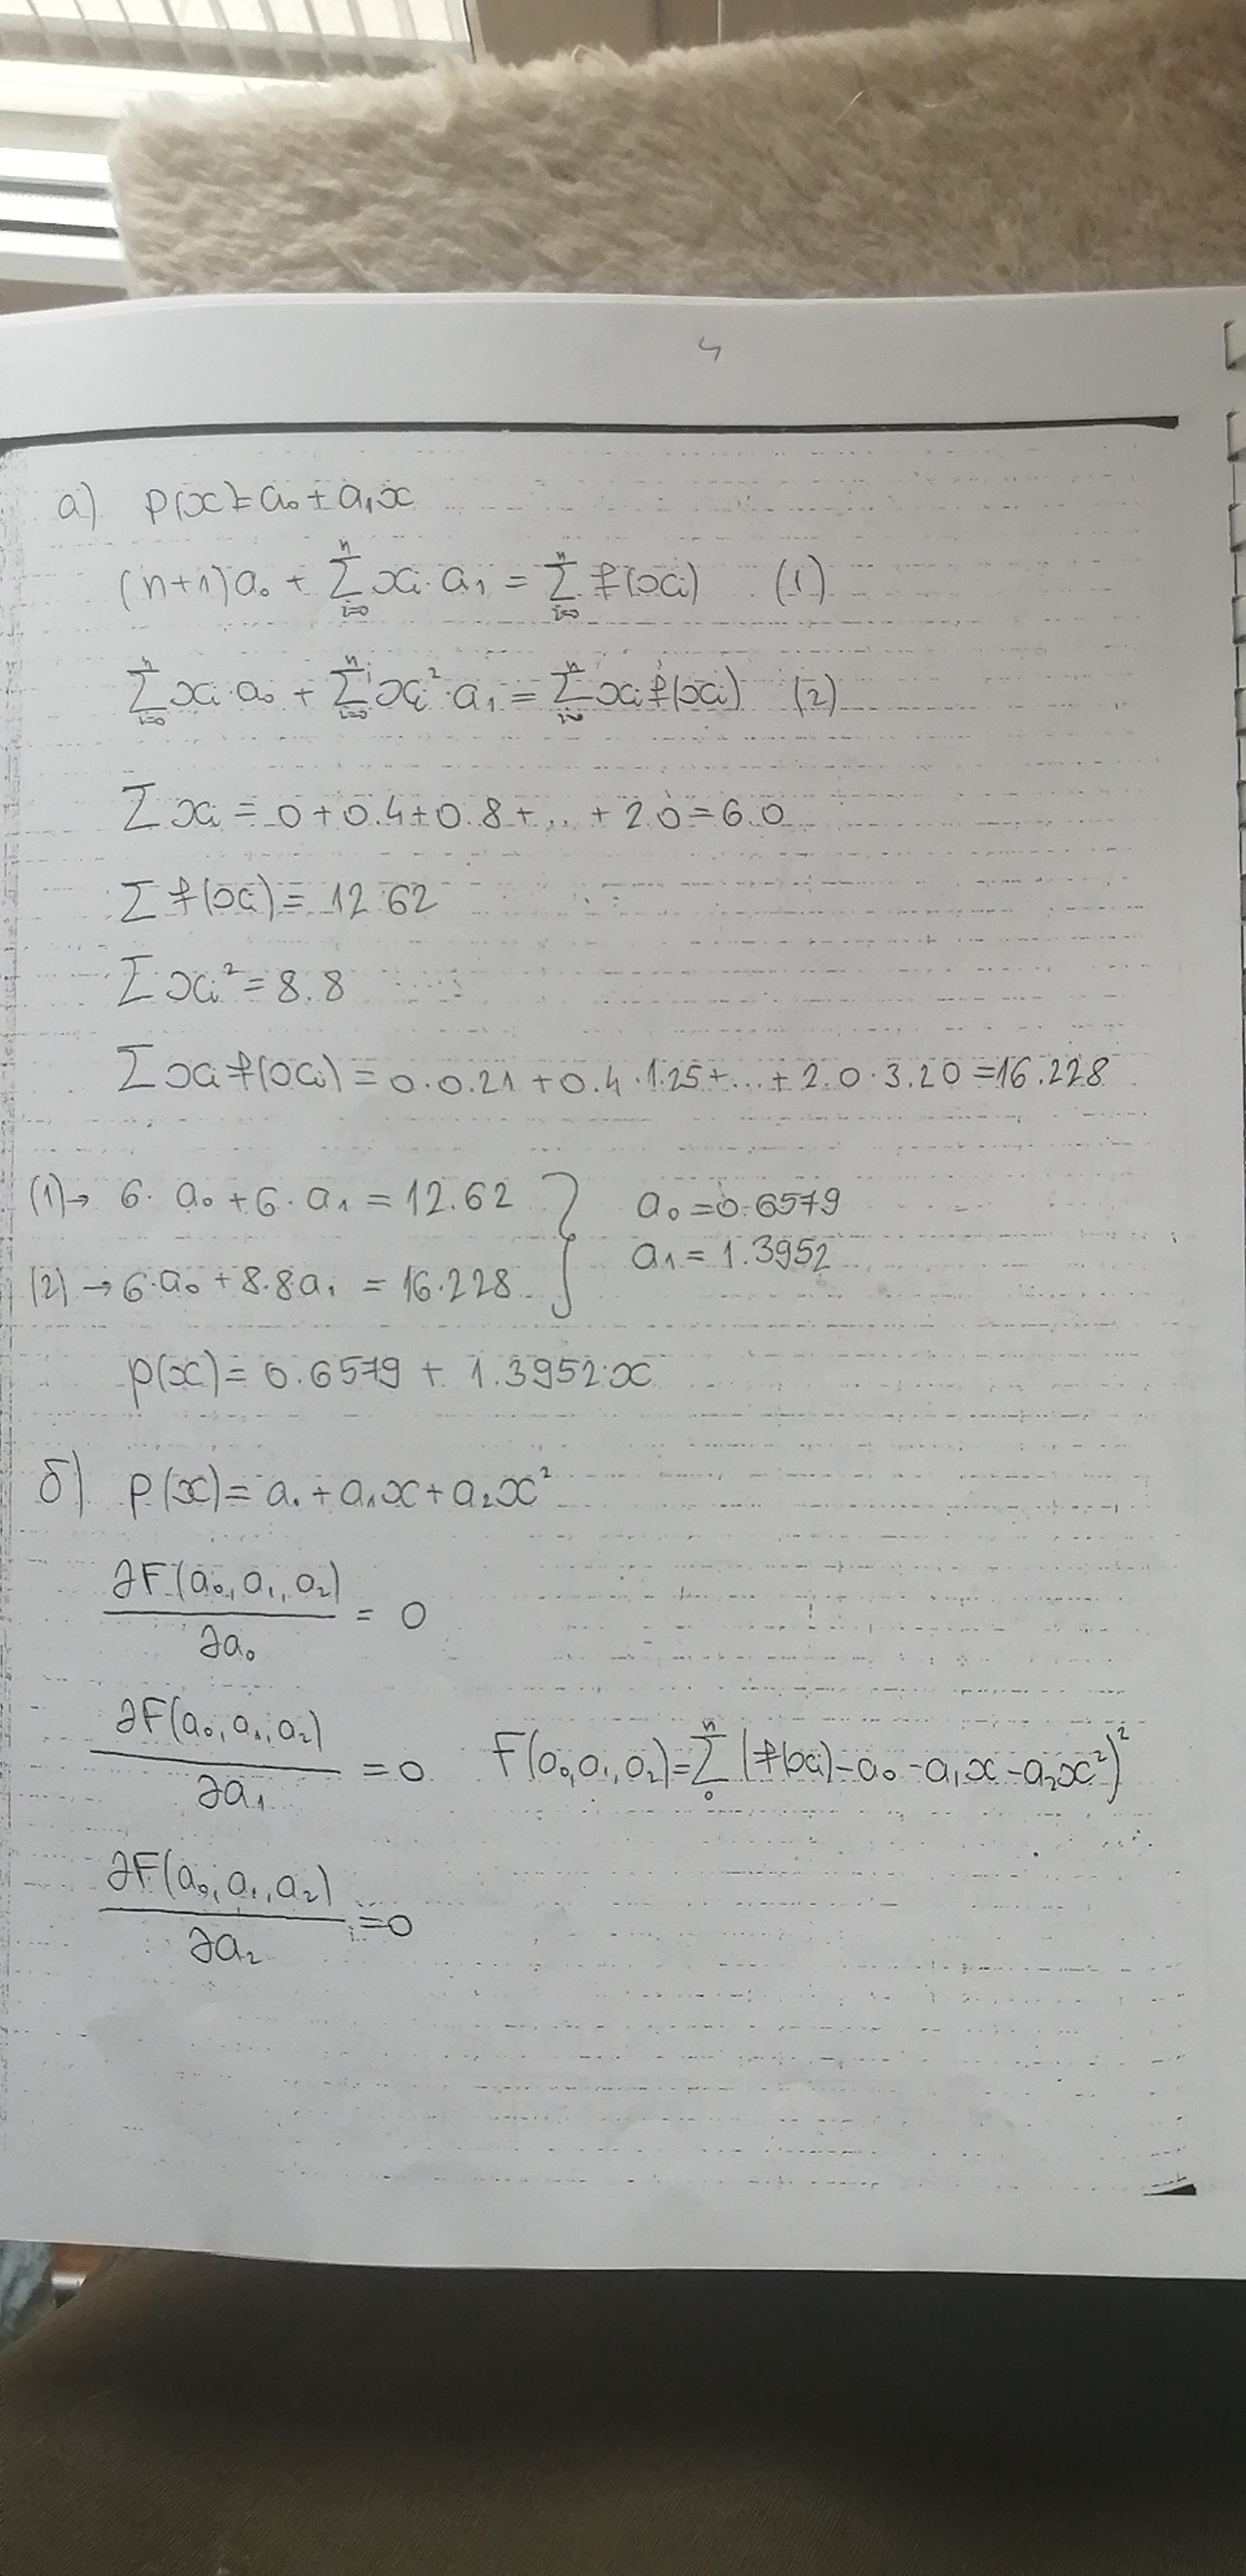 4
а) p(x)=a₀+a₁x
(n+1)a₀ + \sum_{i=0}^{n} xᵢ·a₁ = \sum_{i=0}^{n} f(xᵢ) (1)
\sum_{i=0}^{n} xᵢ·a₀ + \sum_{i=0}^{n} xᵢ²·a₁ = \sum_{i=0}^{n} xᵢf(xᵢ) (2)
Σxᵢ = 0+0.4+0.8+...+2.0=6.0
Σf(xᵢ)=12.62
Σxᵢ²=8.8
Σxᵢf(xᵢ)=0·0.21+0.4·1.25+...+2.0·3.20=16.228
(1)→ 6·a₀+6·a₁=12.62 } a₀=0.6579
(2)→ 6·a₀+8.8a₁ = 16.228 a₁=1.3952
p(x)=0.6579+1.3952·x
б) p(x)=a₀+a₁x+a₂x²
∂F(a₀,a₁,a₂)/∂a₀ = 0
∂F(a₀,a₁,a₂)/∂a₁ = 0 F(a₀,a₁,a₂)=\sum_{0}^{n}(f(xᵢ)-a₀-a₁x-a₂x²)²
∂F(a₀,a₁,a₂)/∂a₂ =0